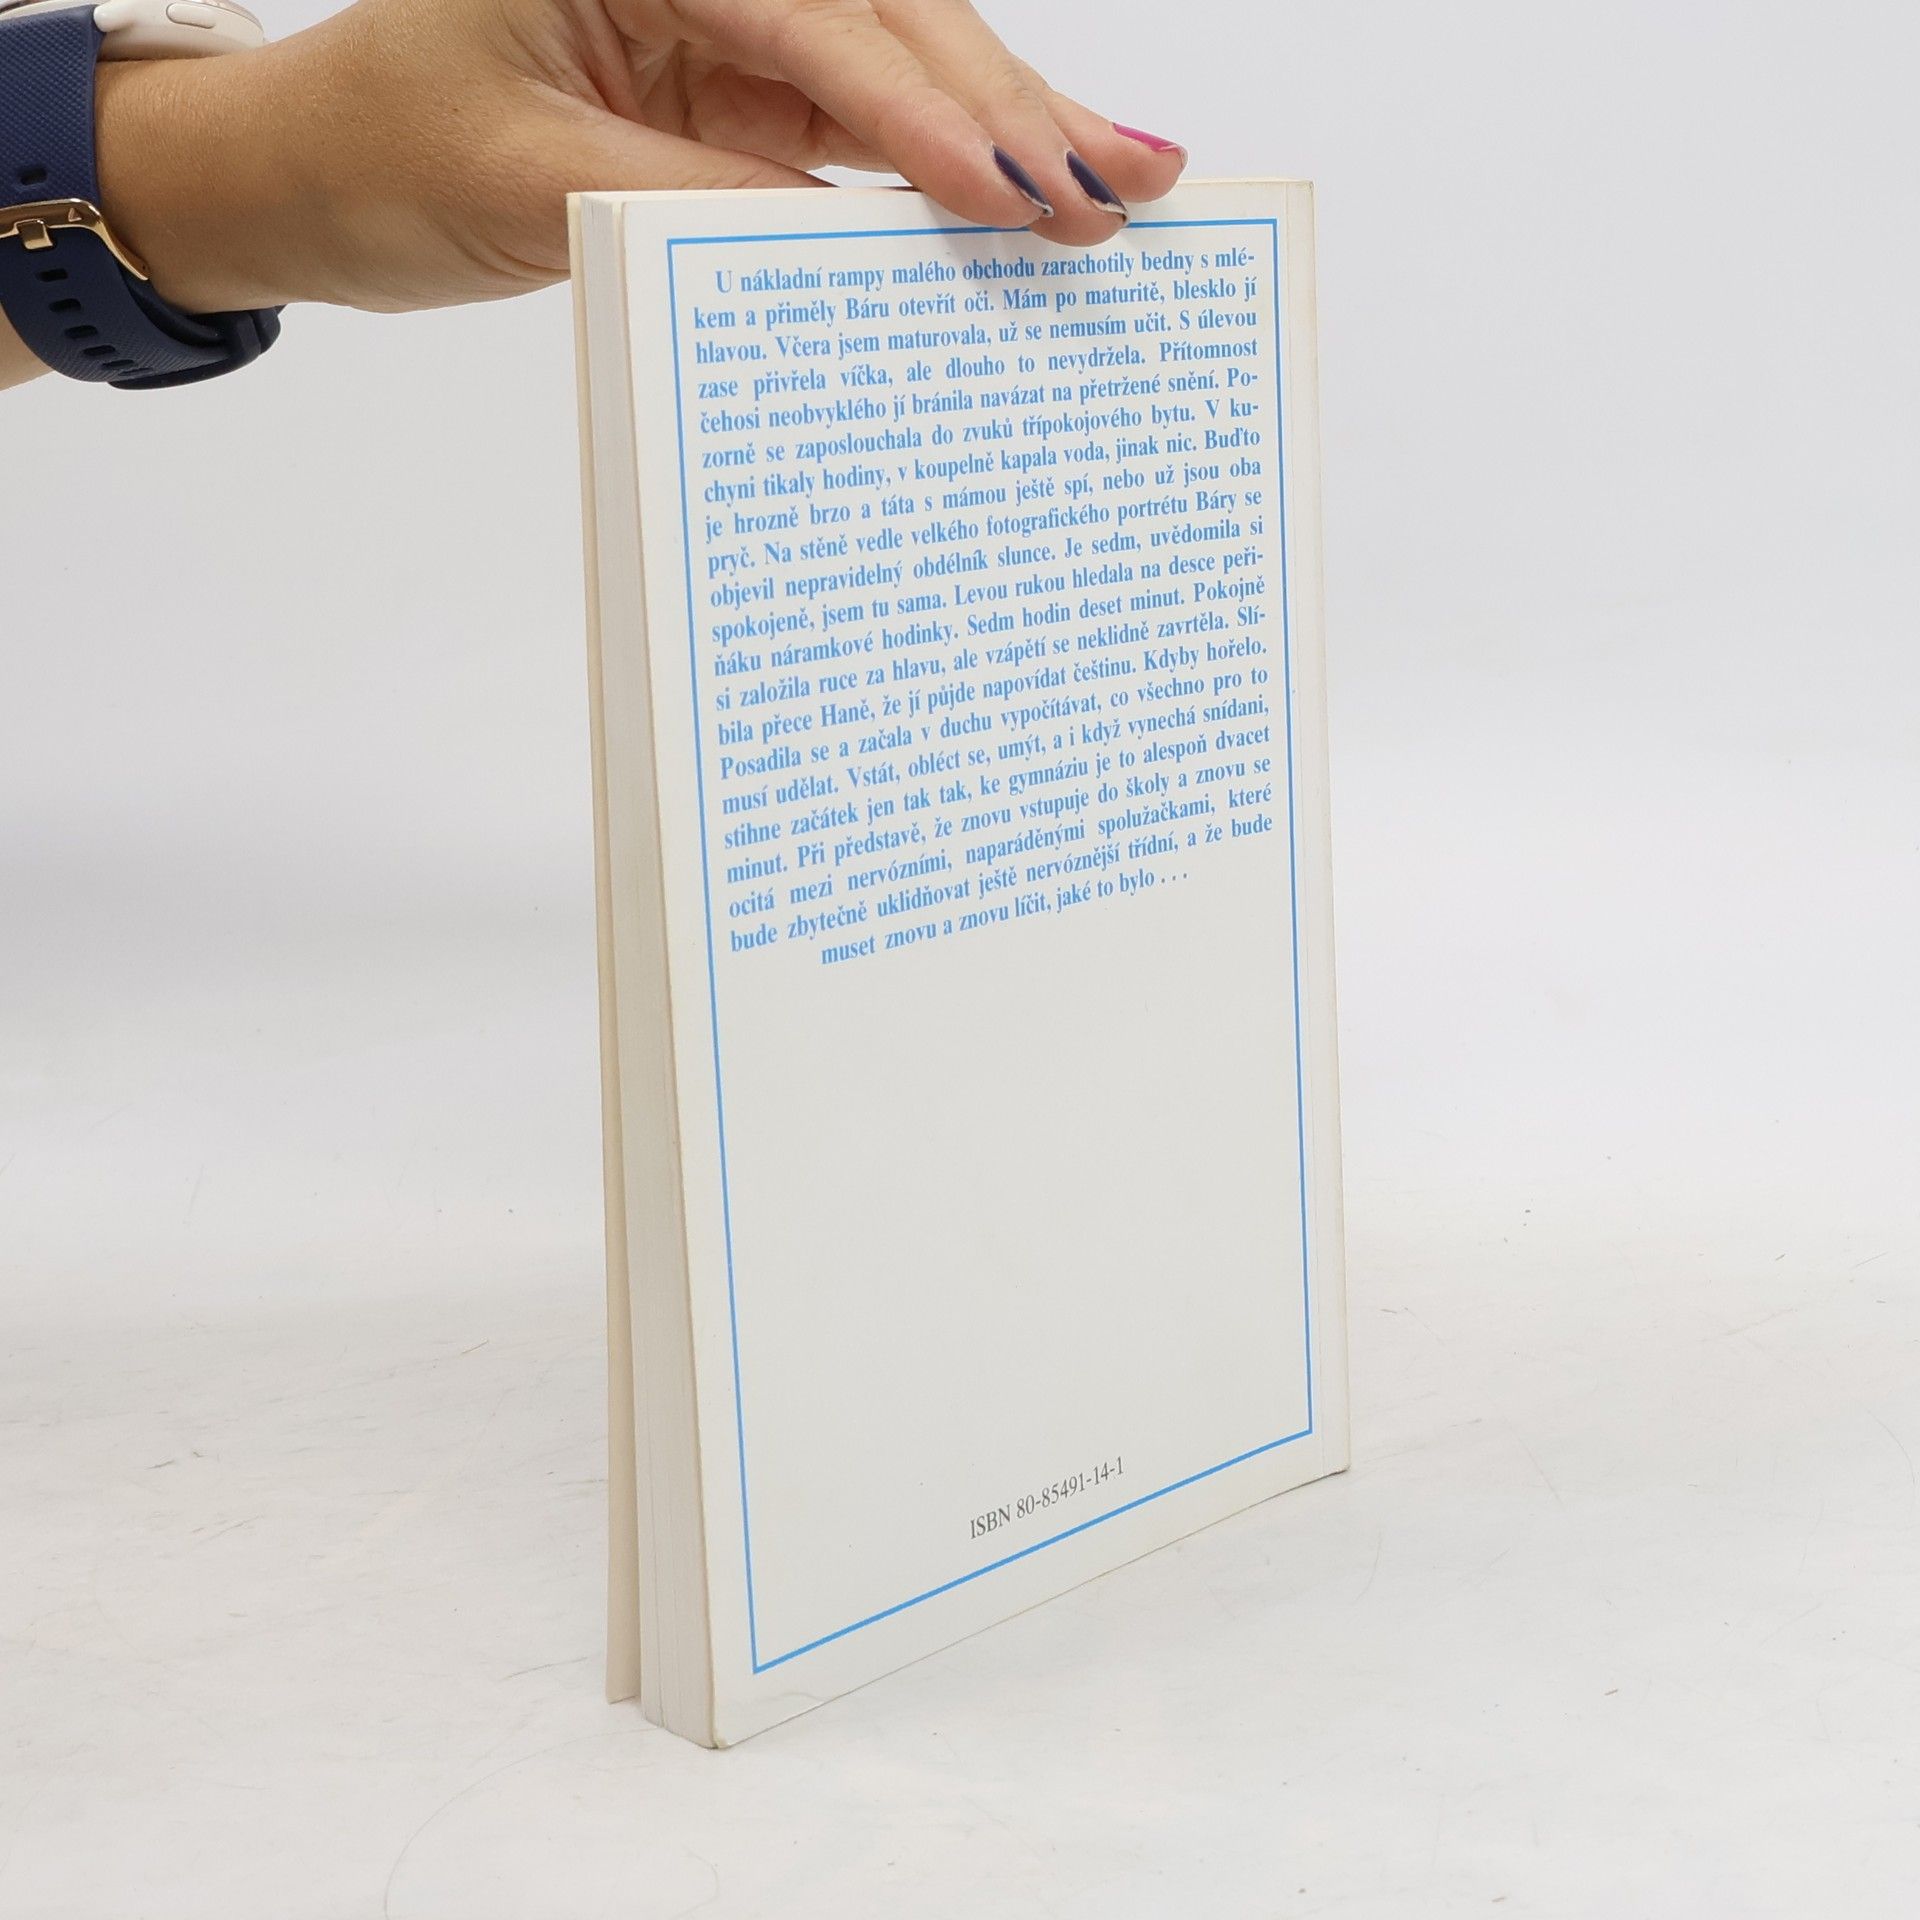 U nákladní rampy malého obchodu zarachotily bedny s mlé-
kem a přiměly Báru otevřít oči. Mám po maturitě, blesklo jí
hlavou. Včera jsem maturovala, už se nemusím učit. S úlevou
zase přivřela víčka, ale dlouho to nevydržela. Přítomnost
čehosi neobvyklého jí bránila navázat na přetržené snění. Po-
zorně se zaposlouchala do zvuků třípokojového bytu. V ku-
chyni tikaly hodiny, v koupelně kapala voda, jinak nic. Buďto
je hrozně brzo a táta s mámou ještě spí, nebo už jsou oba
pryč. Na stěně vedle velkého fotografického portrétu Báry se
objevil nepravidelný obdélník slunce. Je sedm, uvědomila si
spokojeně, jsem tu sama. Levou rukou hledala na desce peři-
ňáku náramkové hodinky. Sedm hodin deset minut. Pokojně
si založila ruce za hlavu, ale vzápětí se neklidně zavrtěla. Slí-
bila přece Haně, že jí půjde napovídat češtinu. Kdyby hořelo.
Posadila se a začala v duchu vypočítávat, co všechno pro to
musí udělat. Vstát, obléct se, umýt, a i když vynechá snídani,
stihne začátek jen tak tak, ke gymnáziu je to alespoň dvacet
minut. Při představě, že znovu vstupuje do školy a znovu se
ocitá mezi nervózními, naparáděnými spolužačkami, které
bude zbytečně uklidňovat ještě nervóznější třídní, a že bude
muset znovu a znovu líčit, jaké to bylo . . .
ISBN 80-85491-14-1